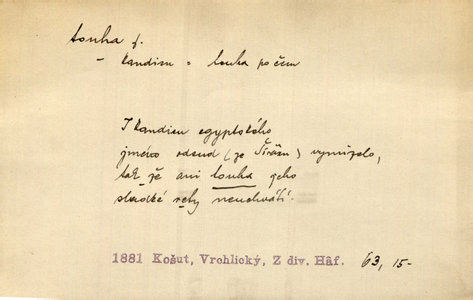 touha f.
- kandisu = touha po čem
I kandisu egyptského
jméno odsud (ze Šírázu) vymizelo,
tak že ani touha jeho
sladké rety neuchvátí.
1881 Košut, Vrchlický, Z div. Háf. 63, 15-